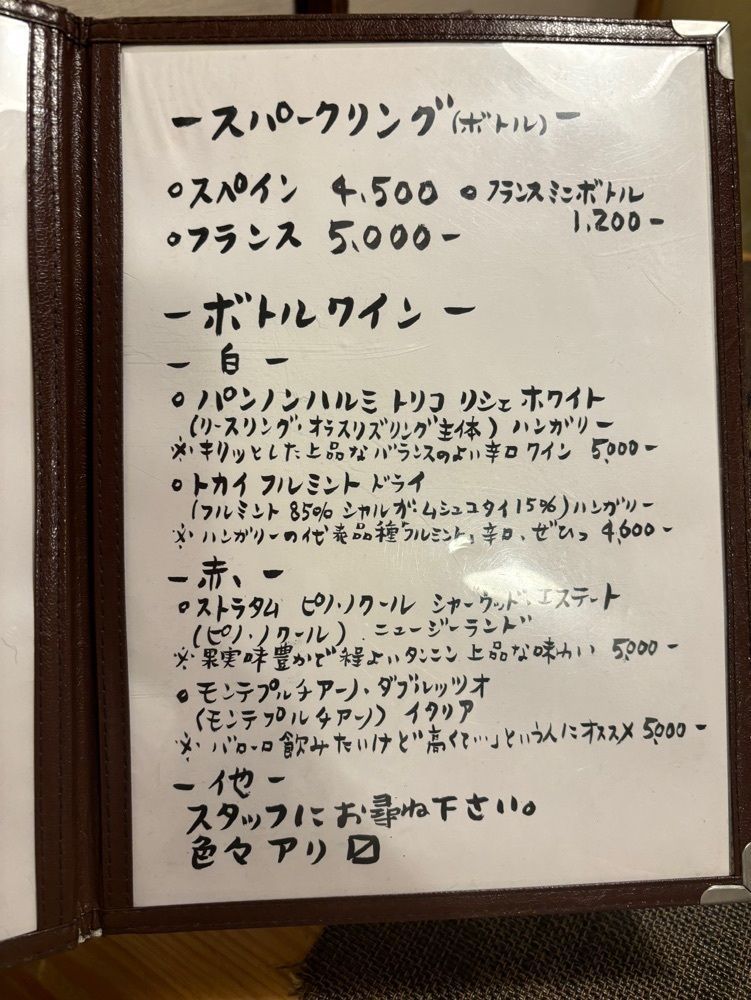 ースパークリング(ボトル)ー
○スペイン 4,500 ○フランスミニボトル
1,200ー
○フランス 5,000ー
ーボトルワインー
ー白ー
○パンノンハルミ トリコ リシェ ホワイト
(リースリング・オラスリズリング主体)ハンガリー
※キリッとした上品なバランスのよい辛口ワイン 5,000ー
○トカイ フルミント ドライ
(フルミント 85% シャルガ・ムシュコタイ15%)ハンガリー
※ハンガリーの代表品種「フルミント」辛口、ぜひっ 4,600ー
ー赤ー
○ストラタム ピノ・ノワール シャーウッド・エステート
(ピノ・ノワール) ニュージーランド
※果実味豊かで程よいタンニン 上品な味わい 5,000ー
○モンテプルチアーノ・ダブルッツオ
(モンテプルチアーノ) イタリア
※バローロ飲みたいけど「高くて…」という人にオススメ 5,000ー
ー他ー
スタッフにお尋ね下さい。
色々アリ〼